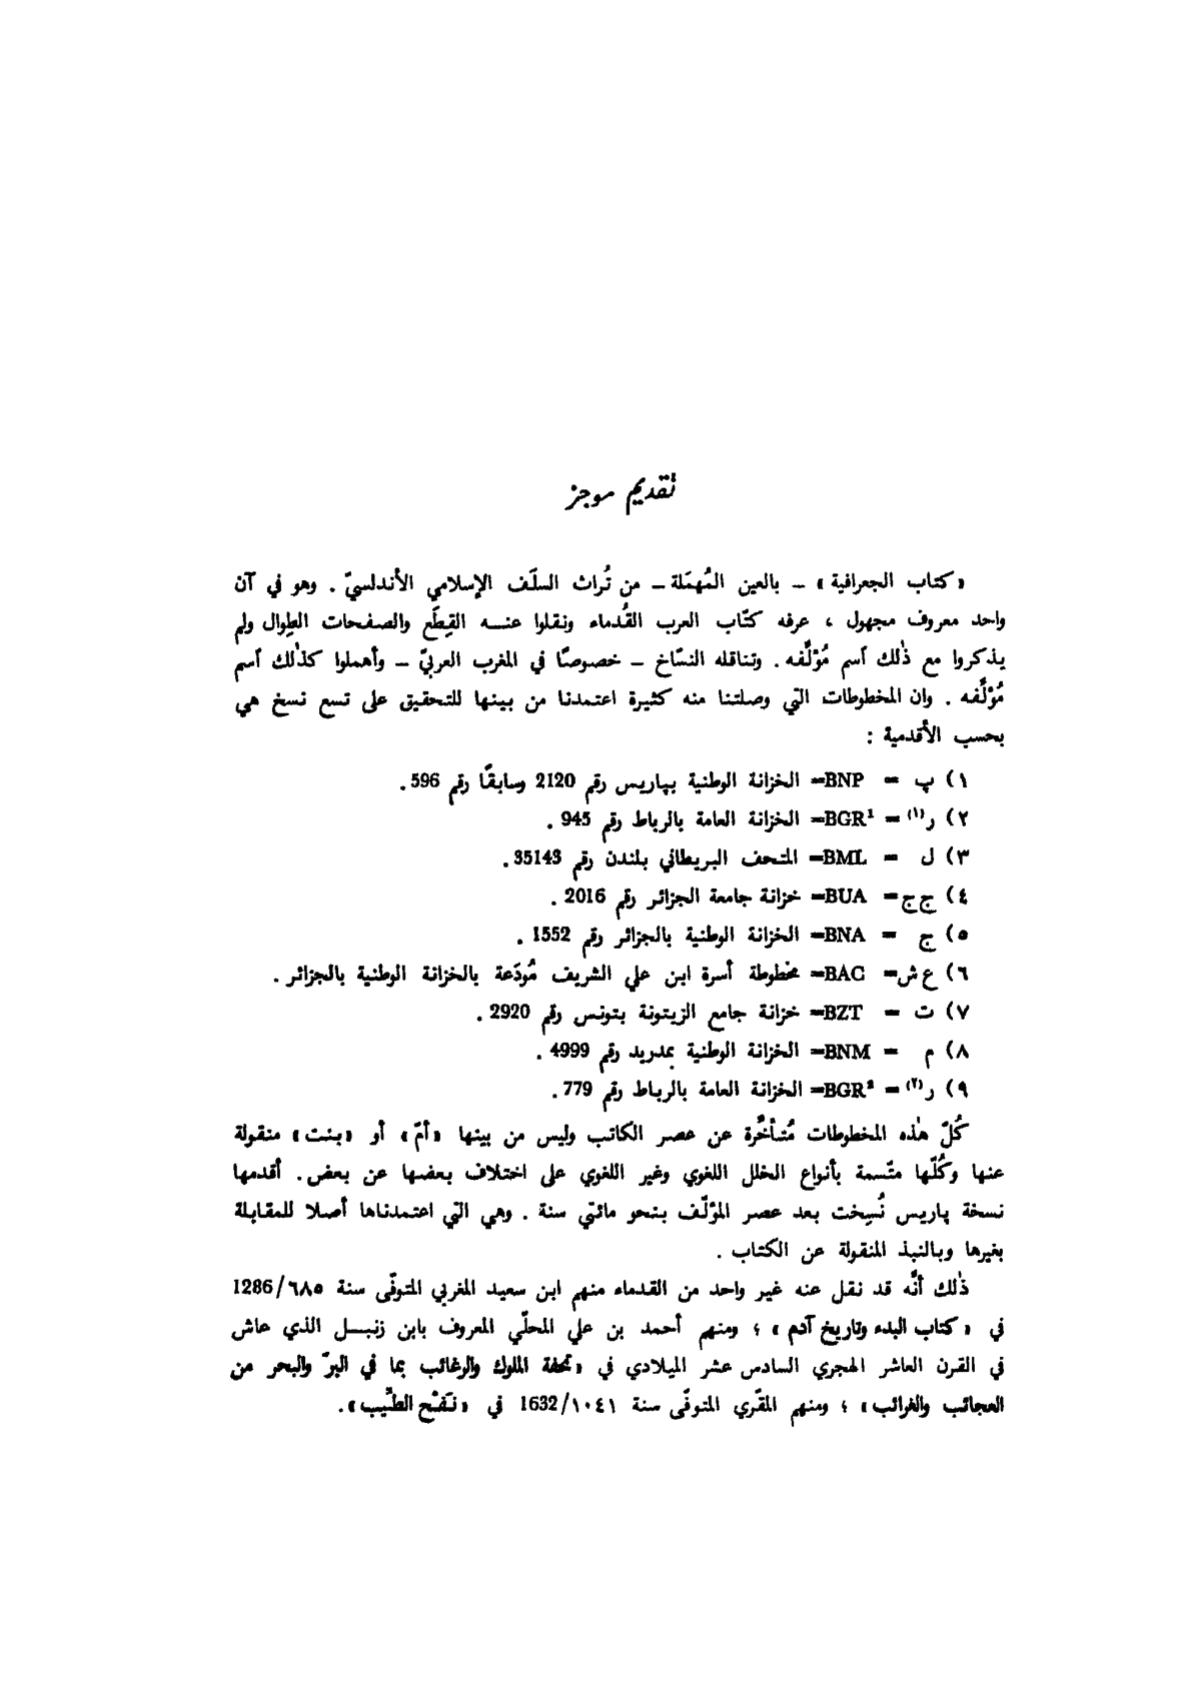 تقديم موجز
«كتاب الجعرافية» – بالعين المُهمَلة – من تُراث السلَف الإسلامي الأندلسيّ . وهو في آن
واحد معروف مجهول ، عرفه كتّاب العرب القُدماء ونقلوا عنه القِطَع والصفحات الطِوال ولم
يذكروا مع ذٰلك آسم مُؤلِّفه . وتناقله النسّاخ – خصوصًا في المغرب العربيّ – وأهملوا كذٰلك آسم
مُؤلِّفه . وان المخطوطات التي وصلتنا منه كثيرة اعتمدنا من بينها للتحقيق على تسع نسخ هي
بحسب الأقدمية :
١) پ = BNP= الخزانة الوطنية بپاريس رقم 2120 وسابقًا رقم 596 .
٢) ر(١) = BGR¹= الخزانة العامة بالرباط رقم 945 .
٣) ل = BML= المتحف البريطاني بلندن رقم 35143 .
٤) ج ج = BUA= خزانة جامعة الجزائر رقم 2016 .
٥) ج = BNA= الخزانة الوطنية بالجزائر رقم 1552 .
٦) ع ش= BAC= مخطوطة أسرة ابن علي الشريف مُودَعة بالخزانة الوطنية بالجزائر .
٧) ت = BZT= خزانة جامع الزيتونة بتونس رقم 2920 .
٨) م = BNM= الخزانة الوطنية بمدريد رقم 4999 .
٩) ر(٢) = BGR²= الخزانة العامة بالرباط رقم 779 .
كُلّ هٰذه المخطوطات مُتأخِّرة عن عصر الكاتب وليس من بينها «أمّ» أو «بنت» منقولة
عنها وكُلّها متّسمة بأنواع الخلل اللغوي وغير اللغوي على اختلاف بعضها عن بعض . أقدمها
نسخة پاريس نُسِخت بعد عصر المؤلّف بنحو مائتي سنة . وهي التي اعتمدناها أصلا للمقابلة
بغيرها وبالنبذ المنقولة عن الكتاب .
ذٰلك أنَّه قد نقل عنه غير واحد من القدماء منهم ابن سعيد المغربي المتوفّى سنة ٦٨٥/1286
في «كتاب البدء وتاريخ آدم» ؛ ومنهم أحمد بن علي المحلّي المعروف بابن زنبل الذي عاش
في القرن العاشر الهجري السادس عشر الميلادي في «تحفة الملوك والرغائب بما في البرّ والبحر من
العجائب والغرائب» ؛ ومنهم المقّري المتوفّى سنة ١٠٤١/1632 في «نَفْح الطِّيب» .